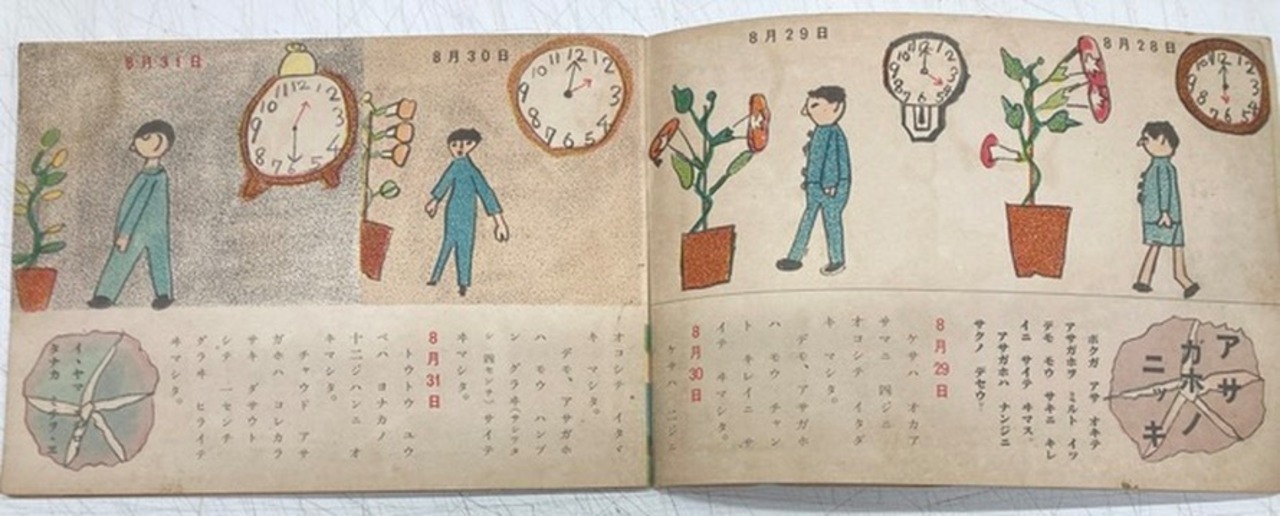 8月28日
8月29日
アサ
ガホノ
ニッキ
ボクガ アサ オキテ
アサガホヲ ミルト イツ
デモ モウ サキニ キレ
イニ サイテ ヰマス。
アサガホハ ナンジニ
サクノ デセウ。
8月29日
ケサハ オカア
サマニ 四ジニ
オコシテ イタダ
キ マシタ。
デモ、アサガホ
ハ モウ チャン
ト キレイニ サ
イテ ヰマシタ。
8月30日
ケサハ 二ジニ
8月30日
8月31日
オコシテ イタヾ
キ マシタ。
デモ、アサガホ
ハ モウ ハンブ
ン グラヰ
サイテ
ヰマシタ。
8月31日
トウトウ ユウ
ベハ ヨナカノ
十二ジハンニ オ
キマシタ。
チャウド アサ
ガホハ コレカラ
サキ ダサウト
シテ 一センチ
グラヰ ヒライテ
ヰマシタ。
タナカ